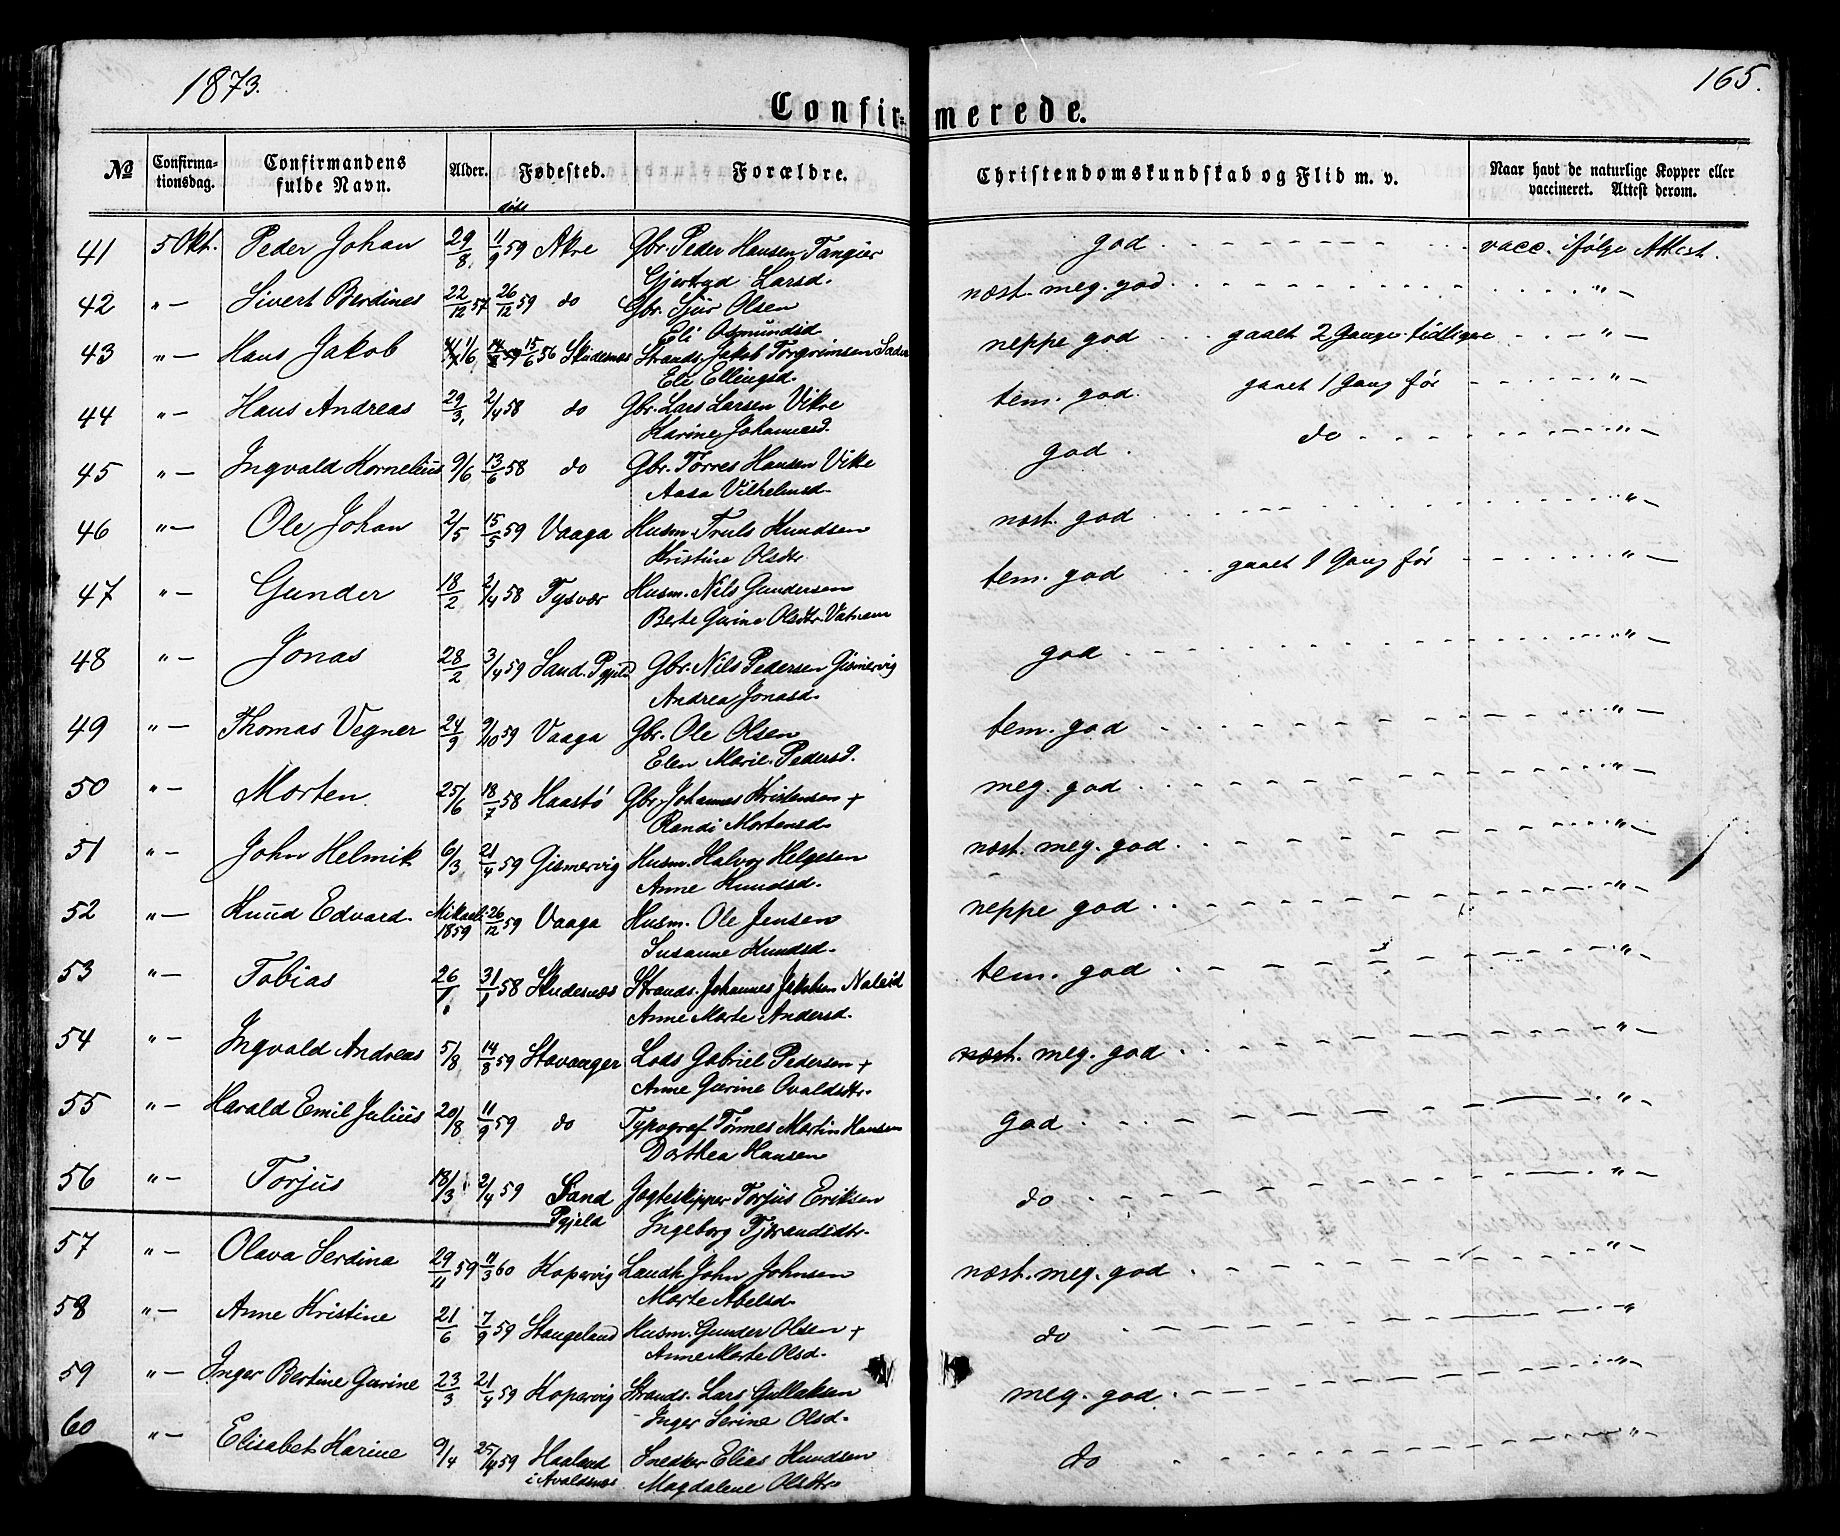 1873.
165.
Confir= merede.
No
Confirma-
tionsdag.
Confirmandens
fulde Navn.
Alder.
Fødested.
Forældre.
Christendomskundskab og Flid m. v.
Naar havt de naturlige Kopper eller
vaccineret. Attest derom.
døbt
41 5 Okt. Peder Johan 29/8 11/9 59 Akre Gbr. Peder Hansen Tangier god vacc. ifølge Attest.
Gjertrud Larsd.
42 "— Sivert Berdines 22/12 57 26/12 59 do Gbr. Sjur Olsen næst. meg. god "—
Eli Osmundsd.
43 "— Hans Jakob 1/6 15/6 56 Skudesnæs Strands. Jakob Torgrimsen neppe god gaaet 2 Gange tidligere "—
Eli Ellingsd.
44 "— Hans Andreas 29/3 2/4 58 do Gbr. Lars Larsen Vikre tem. god. gaaet 1 Gang før "—
Karine Johannesd.
45 "— Ingvald Kornelius 9/6 13/6 58 do Gbr. Tørres Hansen Vikre god do "—
Aasa Vilhelmsd.
46 "— Ole Johan 2/5 15/5 59 Vaaga Husm. Truls Knudsen næst. god "—
Kristine Olsdtr
47 "— Gunder 18/2 2/4 58 Tysvær Husm. Nils Gundersen tem. god gaaet 1 Gang før "—
Berte Gurine Olsdtr. Vatnem
48 "— Jonas 28/2 3/4 59 Sand. Pgjeld Gbr. Nils Pedersen Gismervig god "—
Andrea Jonasd.
49 "— Thomas Vegner 24/9 9/10 59 Vaaga Gbr. Ole Olsen tem. god "—
Elen Marie Pedersd.
50 "— Morten 25/6 18/7 58 Haastø Gbr. Johannes Kristensen + meg. god "—
Randi Mortensd.
51 "— John Helmik 6/3 21/4 59 Gismervig Husm. Halvor Helgesen næst. meg. god "—
Anne Knudsd.
52 "— Knud Edvard. Mikaeli 1859 26/12 59 Vaaga Husm. Ole Jensen neppe god "—
Susanne Knudsd.
53 "— Tobias 26/1 31/1 58 Skudesnæs Strands. Johannes Jakobsen Naleid tem. god "—
Anne Marte Andersd.
54 "— Ingvald Andreas 5/8 14/8 59 Stavanger Lods Gabriel Pedersen + næst. meg. god "—
Anne Gurine Ovaldsdtr.
55 "— Harald Emil Julius 20/8 11/9 59 do Typograf Tønnes Martin Hansen god "—
Dorthea Hansen
56 "— Torjus 18/3 2/4 59 Sand Jagteskipper Torjus Eriksen do "—
Pgjeld Ingeborg Tjerandsdtr.
57 "— Olava Serdina 29/11 59 11/3 60 Kopervig Landh. John Johnsen næst. meg. god "—
Marte Abelsd.
58 "— Anne Kristine 21/6 7/9 59 Stangeland Husm. Gunder Olsen + do "—
Anne Marte Olsd.
59 "— Inger Bertine Gurine 23/3 21/4 59 Kopervig Strands. Lars Gullaksen meg. god. "—
Inger Serine Olsd.
60 "— Elisabet Karine 9/4 25/4 59 Haaland Snedker Elias Knudsen do "—
i Avaldsnæs Magdalene Olsdtr